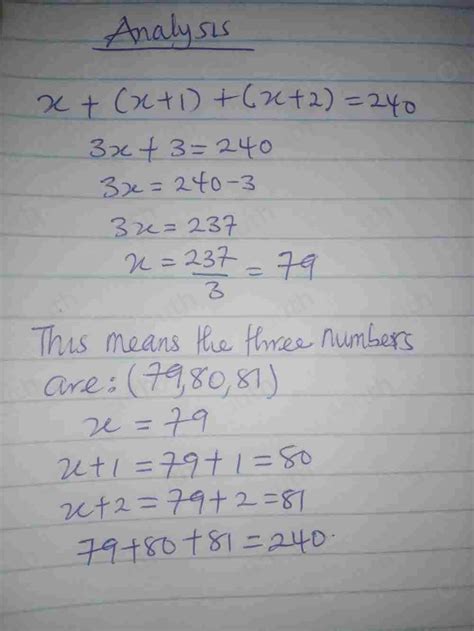 Analysis
x + (x+1) + (x+2) = 240
3x + 3 = 240
3x = 240-3
3x = 237
x = 237/3 = 79
This means the three numbers
are: (79,80,81)
x = 79
x+1 = 79+1 = 80
x+2 = 79+2 = 81
79+80+81 = 240.